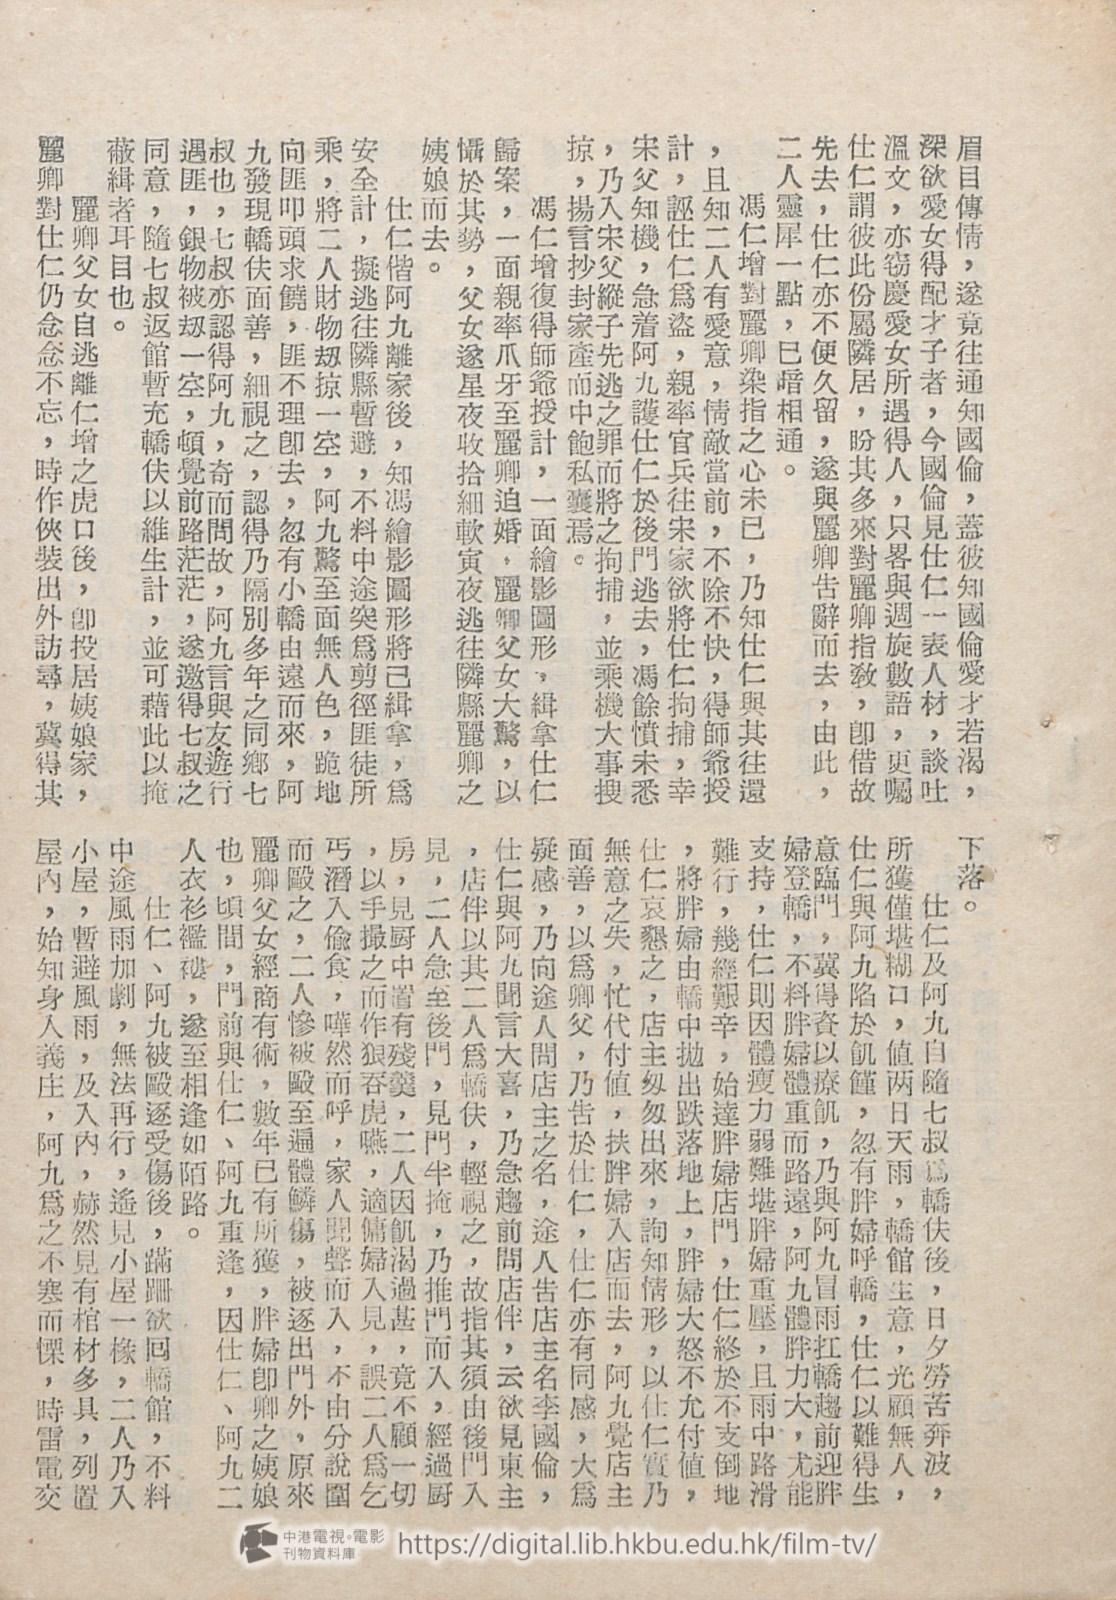 眉目傳情，遂竟往通知國倫，蓋彼知國倫愛才若渴，
深欲愛女得配才子者，今國倫見仕仁一表人材，談吐
溫文，亦窃慶愛女所遇得人，只畧與週旋數語，更囑
仕仁謂彼此份屬隣居，盼其多來對麗卿指敎，卽借故
先去，仕仁亦不便久留，遂與麗卿吿辭而去，由此，
二人靈犀一點，巳暗相通。
馮仁增對麗卿染指之心未已，乃知仕仁與其往還
，且知二人有愛意，情敵當前，不除不快，得師爺授
計，誣仕仁爲盜，親率官兵往宋家欲將仕仁拘捕，幸
宋父知機，急着阿九護仕仁於後門逃去，馮餘憤未悉
，乃入宋父縱子先逃之罪而將之拘捕，並乘機大事搜
掠，揚言抄封家產而中飽私囊焉。
馮仁增復得師爺授計，一面繪影圖形，緝拿仕仁
歸案，一面親率爪牙至麗卿迫婚，麗卿父女大驚，以
懾於其勢，父女遂星夜收拾細軟寅夜逃往隣縣麗卿之
姨娘而去。
仕仁偕阿九離家後，知馮繪影圖形將己緝拿，爲
安全計，擬逃往隣縣暫避，不料中途突爲剪徑匪徒所
乘，將二人財物刼掠一空，阿九驚至面無人色，跪地
向匪叩頭求饒，匪不理卽去，忽有小轎由遠而來，阿
九發現轎伕面善，細視之，認得乃隔別多年之同鄉七
叔也，七叔亦認得阿九，奇而問故，阿九言與友遊行
遇匪，銀物被刼一空，頓覺前路茫茫，遂邀得七叔之
同意，隨七叔返館暫充轎伕以維生計，並可藉此以掩
蔽緝者耳目也。
麗卿父女自逃離仁增之虎口後，卽投居姨娘家，
麗卿對仕仁仍念念不忘，時作俠裝出外訪尋，冀得其
下落。
仕仁及阿九自隨七叔爲轎伕後，日夕勞苦奔波，
所獲僅堪糊口，値两日天雨，轎館生意，光顧無人，
仕仁與阿九陷於飢饉，忽有胖婦呼轎，仕仁以難得生
意臨門，冀得資以療飢，乃與阿九冒雨扛轎趨前迎胖
婦登轎，不料胖婦體重而路遠，阿九體胖力大，尤能
支持，仕仁則因體瘦力弱難堪胖婦重壓，且雨中路滑
難行，幾經艱辛，始達胖婦店門，仕仁終於不支倒地
，將胖婦由轎中拋出跌落地上，胖婦大怒不允付値，
仕仁哀懇之，店主匆匆出來，詢知情形，以仕仁實乃
無意之失，忙代付値，扶胖婦入店而去，阿九覺店主
面善，以爲卿父，乃吿於仕仁，仕仁亦有同感，大爲
疑感，乃向途人問店主之名，途人吿店主名李國倫，
仕仁與阿九聞言大喜，乃急趨前問店伴，云欲見東主
，店伴以其二人爲轎伕，輕視之，故指其須由後門入
見，二人急至後門，見門半掩，乃推門而入，經過厨
房，見厨中置有殘羹，二人因飢渴過甚，竟不顧一切
，以手撮之而作狼吞虎嚥，適傭婦入見，誤二人爲乞
丐潛入偸食，嘩然而呼，家人聞聲而入，不由分說圍
而毆之，二人慘被毆至遍體鱗傷，被逐出門外，原來
麗卿父女經商有術，數年已有所獲，胖婦卽卿之姨娘
也，頃間，門前與仕仁、阿九重逢，因仕仁、阿九二
人衣衫襤褸，遂至相逢如陌路。
仕仁、阿九被毆逐受傷後，蹣跚欲囘轎館，不料
中途風雨加劇，無法再行，遙見小屋一椽，二人乃入
小屋，暫避風雨，及入內，赫然見有棺材多具，列置
屋內，始知身入義庄，阿九爲之不寒而慄，時雷電交
中港電視·電影
刊物資料庫
https://digital.lib.hkbu.edu.hk/film-tv/